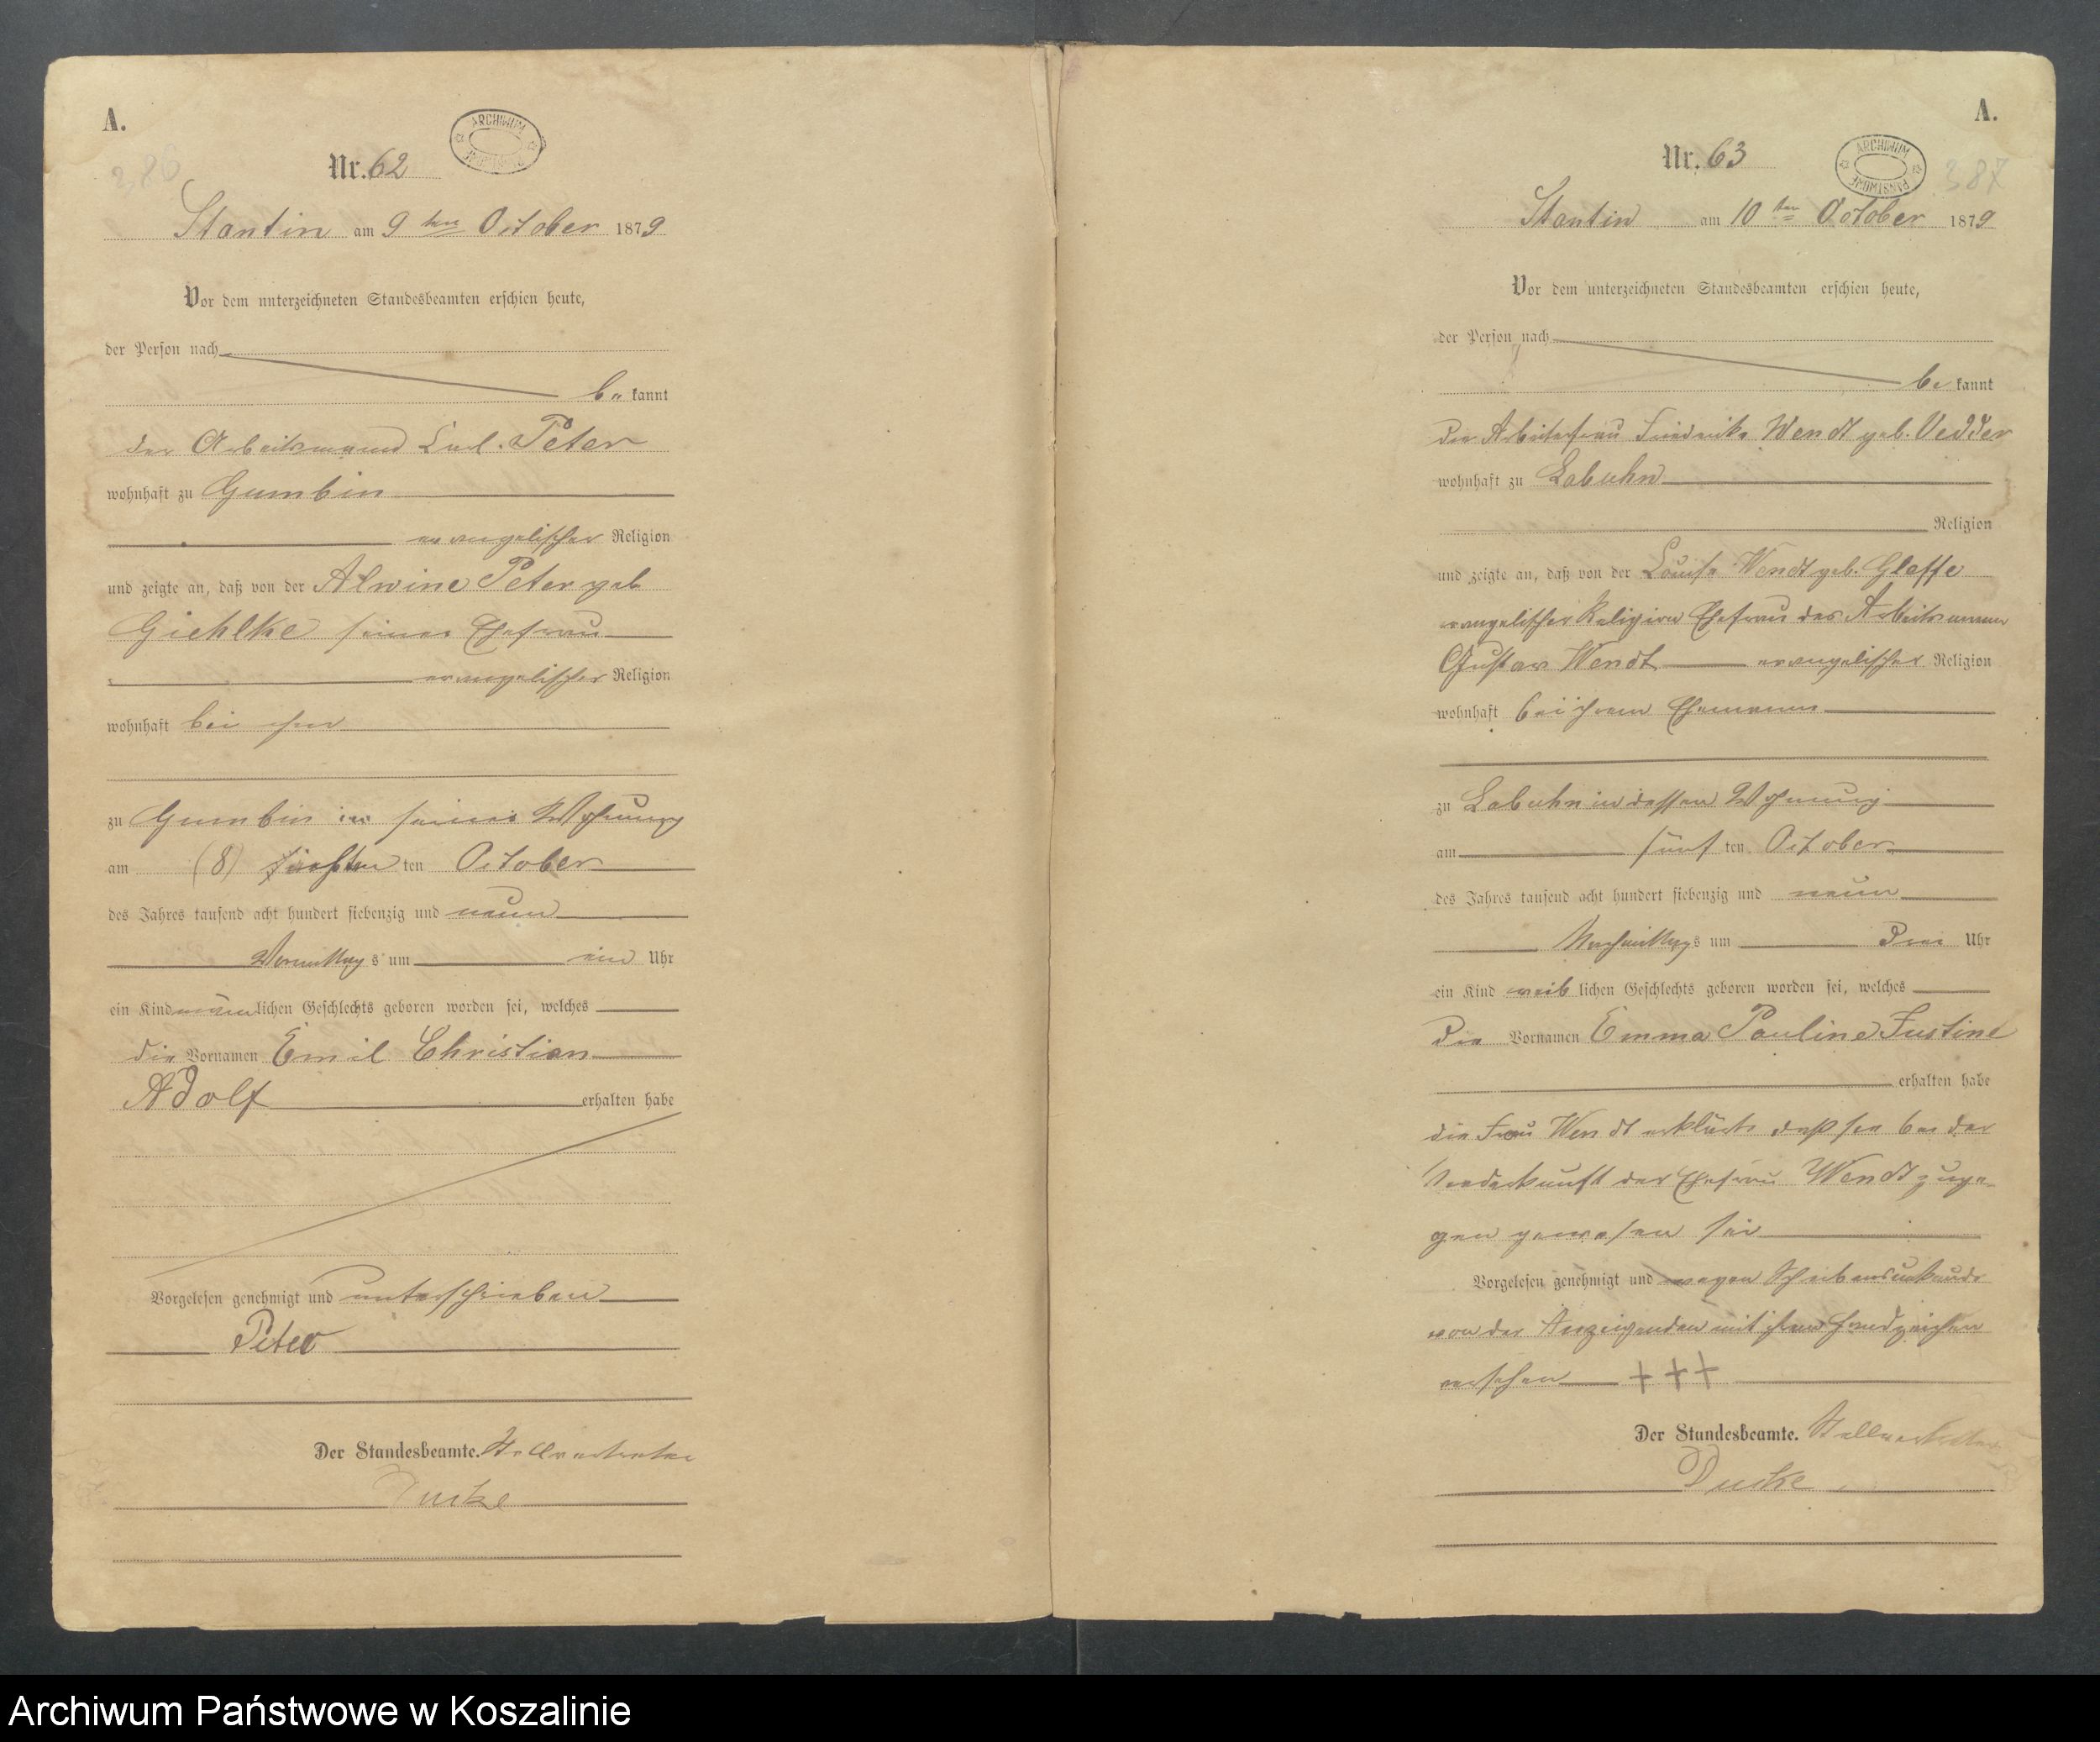 A.
386
Nr. 62
ARCHIWUM
Stantin am 9ten October 1879
Vor dem unterzeichneten Standesbeamten erschien heute,
der Person nach
be kannt
der Arbeitsmann Carl Peter
wohnhaft zu Gumbin
evangelischer Religion
und zeigte an, daß von der Alwine Peter geb
Giehlke seiner Ehefrau
evangelischer Religion
wohnhaft bei ihm
zu Gumbin in seiner Wohnung
am (8) ten October
des Jahres tausend acht hundert siebenzig und neun
Vormittags um ein Uhr
ein Kind männlichen Geschlechts geboren worden sei, welches
die Vornamen Emil Christian
Adolf erhalten habe
Vorgelesen genehmigt und unterschrieben
Peter
Der Standesbeamte. Stellvertreter
A.
387
Nr. 63
ARCHIWUM
PAŃSTWOWE
Stantin am 10ten October 1879
Vor dem unterzeichneten Standesbeamten erschien heute,
der Person nach
be kannt
Die Arbeiterfrau Friederike Wendt geb. Vedder
wohnhaft zu Labuhn
Religion
und zeigte an, daß von der Louise Wendt geb. Glaffe
evangelischer Religion Ehefrau des Arbeitsmann
Gustav Wendt evangelischer Religion
wohnhaft bei ihrem Ehemanne
zu Labuhn in dessen Wohnung
am fünf ten October
des Jahres tausend acht hundert siebenzig und neun
Nachmittags um Drei Uhr
ein Kind weib lichen Geschlechts geboren worden sei, welches
Die Vornamen Emma Pauline Justine
erhalten habe
die Frau Wendt erklärte daß sie bei der
Niederkunft der Ehefrau Wendt zuge-
gen gewesen sei
Vorgelesen genehmigt und wegen Schreibensunkunde
von der Anzeigenden mit ihrem Handzeichen
versehen +++
Der Standesbeamte. Stellvertreter
Archiwum Państwowe w Koszalinie